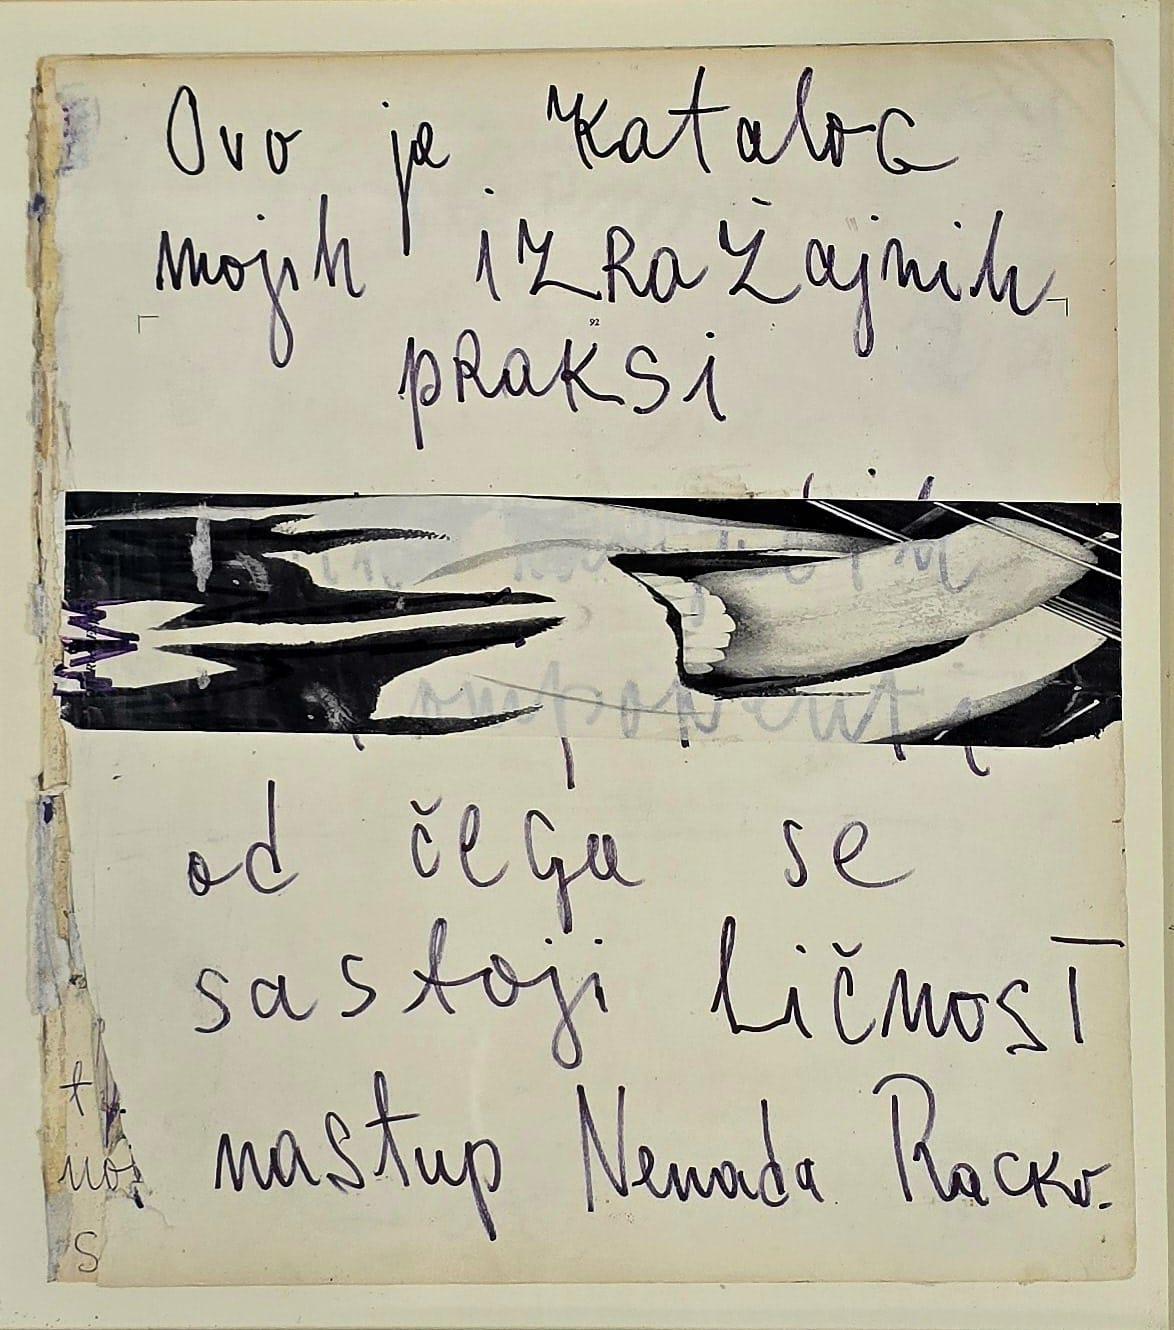 Ovo je Katalog
mojih iZRaŽajnih
92
pRakSi
komponenti
od čega se
sastoji Ličnost
nastup Nenada Racko.